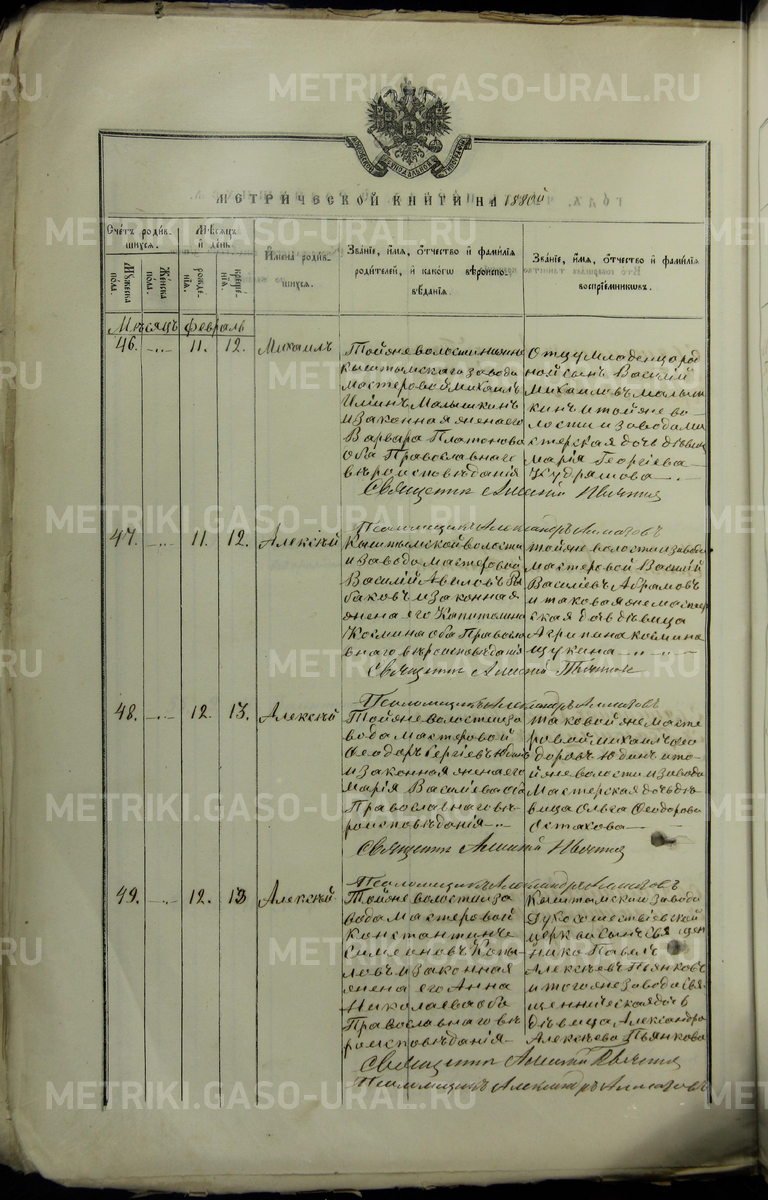 МЕТРИЧЕСКОЙ КНИГИ НА 1880й
Счетъ родив-
шихся.
Мужеска
пола.
Женска
пола.
Мѣсяцъ
и день.
рожде-
нія.
креще-
нія.
Имена родив-
шихся.
Званіе, имя, отчество и фамилія
родителей, и какогω вѣроиспо-
вѣданія.
Званіе, имя, отчество и фамилія
воспріемникωвъ.
Мѣсяцъ февраль
46. -„- 11. 12. Михаилъ
Тойже волости
Кыштымскаго завода
мастеровой Михаилъ
Малышкинъ
и законная жена его
Варвара Платонова
оба Православнаго
вѣроисповѣданія
Отцу младенца род
ной сынъ Василій
Михаиловъ Малыш
кинъ и тойже во-
лости и завода ма
стерская дочь дѣвица
Марія Георгіева
Кудряшова
Священникъ Алексій
Псаломщикъ Александръ Алмазовъ
47. -„- 11. 12. Алексѣй
Кыштымской волости
и завода мастеровой
Василій
баковъ и законная
жена его Капитолина
Космина оба Правосла
внаго вѣроисповѣданія
тойже волости и завода
мастеровой Василій
Василіевъ Абрамовъ
и таковая же мастер
ская дочь дѣвица
Агрипина Космина
Щукина
Священникъ Алексій
Псаломщикъ Александръ Алмазовъ
48. -„- 12. 13. Алексѣй
Тойже волости и за
вода мастеровой
Феодоръ Сергіевъ Юдинъ
и законная жена его
Марія Василіева оба
Православнаго вѣ-
роисповѣданія
таковой же масте
ровой Михаилъ Фео
доровъ Юдинъ и то-
йже волости и завода
Мастерская дочь дѣ-
вица Ольга Феодорова
Остахова
Священникъ Алексій
Псаломщикъ Александръ Алмазовъ
49. -„- 12. 13 Алексѣй
Тойже волости и за
вода мастеровой
Константинъ
Симеоновъ Копы-
ловъ и законная
жена его Анна
Николаева оба
Православнаго вѣ
роисповѣданія
Кыштымскаго завода
Духосошествіевской
церкви сынъ священ
ника Павелъ
Алексѣевъ Пьянковъ
и того же завода свя-
щенническая дочь
дѣвица Александра
Алексѣева Пьянкова
Священникъ Алексій
Псаломщикъ Александръ Алмазовъ
METRIKI.GASO-URAL.RU